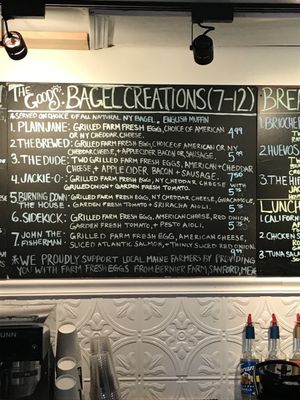 THE Goods: BAGEL CREATIONS (7-12)
*SERVED ON CHOICE OF ALL NATURAL NY BAGEL, ENGLISH MUFFIN
1. PLAIN JANE: GRILLED FARM FRESH EGG, CHOICE OF AMERICAN
OR NY CHEDDAR CHEESE. 4.99
2. THE BREWED: GRILLED FARM FRESH EGG, CHOICE OF AMERICAN OR NY
CHEDDAR CHEESE, + APPLE CIDER BACON OR SAUSAGE. 5.99
3. THE DUDE: TWO GRILLED FARM FRESH EGGS, AMERICAN + CHEDDAR
CHEESE + APPLE CIDER, BACON + SAUSAGE. 7.50
4. JACKIE-O: GRILLED FARM FRESH EGG, NY CHEDDAR CHEESE WITH
GRILLED ONION + GARDEN FRESH TOMATO. 5.75
5. BURNING DOWN THE HOUSE: GRILLED FARM FRESH EGG, NY CHEDDAR CHEESE, GUACAMOLE,
GARDEN FRESH TOMATO + SRIRACHA AIOLI. 5.75
6. SIDEKICK: GRILLED FARM FRESH EGG, AMERICAN CHEESE, RED ONION,
GARDEN FRESH TOMATO, + PESTO AIOLI. 5.75
7 JOHN THE FISHERMAN: GRILLED FARM FRESH EGG, AMERICAN CHEESE,
SLICED ATLANTIC SALMON, + THINLY SLICED RED ONION.
9.99
*WE PROUDLY SUPPORT LOCAL MAINE FARMERS BY PROVIDING
YOU WITH FARM FRESH EGGS FROM BERNIER FARM, SANFORD, ME*
BRE
1. BRIOCHE
2. HUEVOS
3. THE HI
LUNCH
1. CALIFORN
2. CHICKEN S
3. TUNA SALA